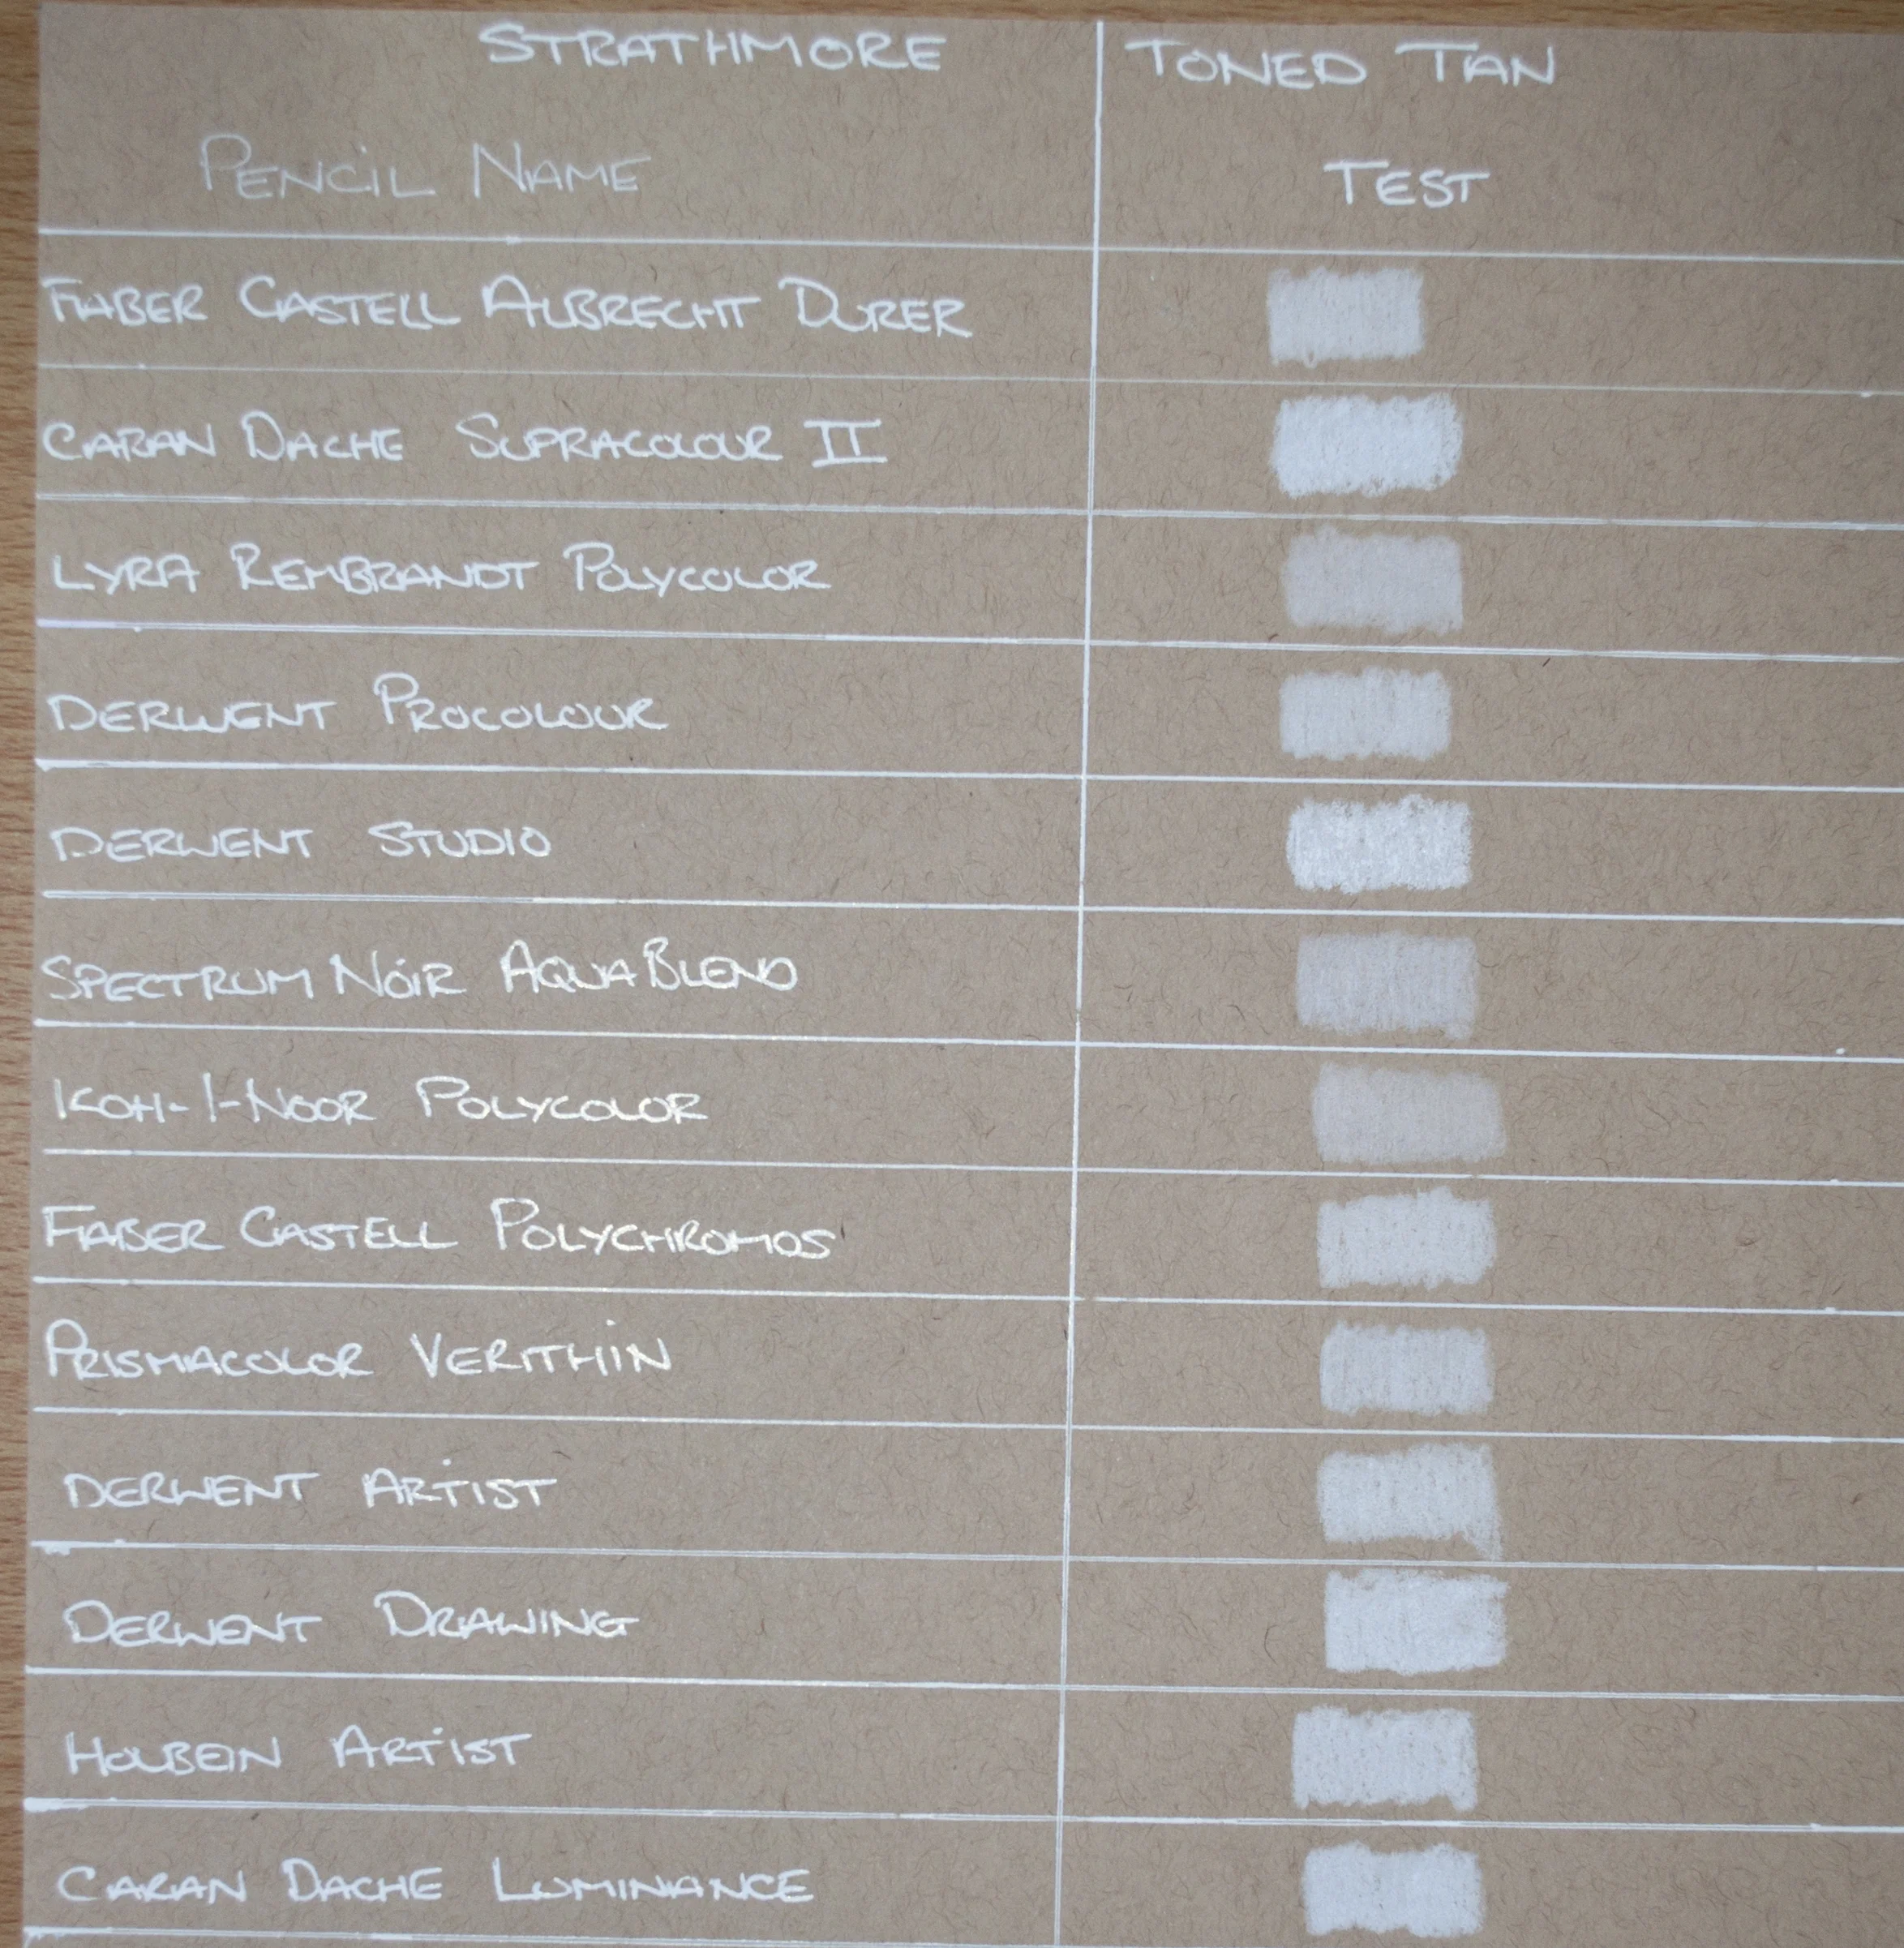 STRATHMORE TONED TAN
PENCIL NAME TEST
FABER CASTELL ALBRECHT DURER
CARAN DACHE SUPRACOLOUR II
LYRA REMBRANDT POLYCOLOR
DERWENT PROCOLOUR
DERWENT STUDIO
SPECTRUM NOIR AQUABLEND
KOH-I-NOOR POLYCOLOR
FABER CASTELL POLYCHROMOS
PRISMACOLOR VERITHIN
DERWENT ARTIST
DERWENT DRAWING
HOLBEIN ARTIST
CARAN DACHE LUMINANCE